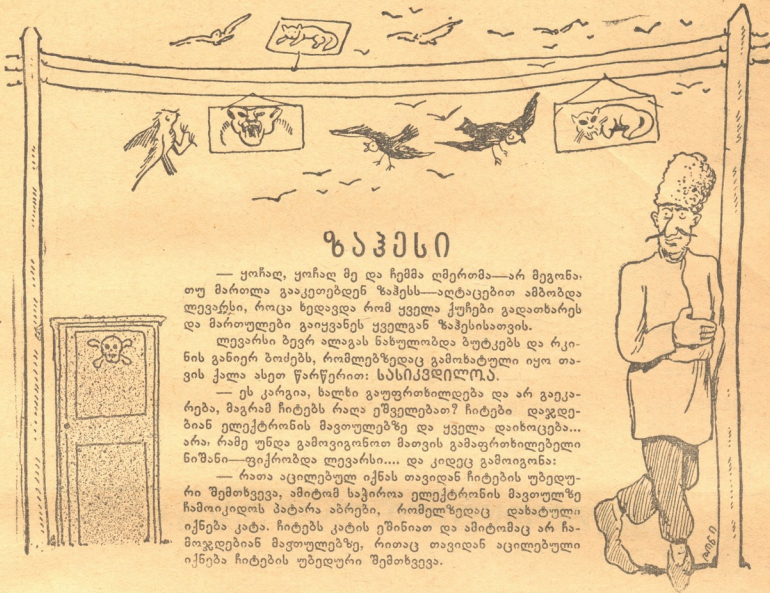 ზაჰესი
— ყოჩაღ, ყოჩაღ მე და ჩემმა ღმერთმა—არ მეგონა
თუ მართლა გააკეთებდენ ზაჰესს—აღტაცებით ამბობდა
ლევარსი, როცა ხედავდა რომ ყველა ქუჩები გადათხარეს
და მართულები გაიყვანეს ყველგან ზაჰესისათვის.
ლევარსი ბევრ ალაგას ნახულობდა ბუტკებს და რკი-
ნის განიერ ბოძებს, რომლებზედაც გამოხატული იყო თა-
ვის ქალა ასეთ წარწერით: სასიკვდილოა.
— ეს კარგია, ხალხი გაუფრთხილდება და არ გაეკა-
რება, მაგრამ ჩიტებს რაღა ეშველებათ? ჩიტები დაჯდე-
ბიან ელექტრონის მავთულებზე და ყველა დაიხოცება...
არა, რამე უნდა გამოვიგონოთ მათვის გამაფრთხილებელი
ნიშანი—ფიქრობდა ლევარსი.... და კიდეც გამოიგონა:
— რათა აცილებულ იქნას თავიდან ჩიტების უბედუ-
რი შემთხვევა, ამიტომ საჭიროა ელექტრონის მავთულზე
ჩამოიკიდოს პატარა აბრები, რომელზედაც დახატული
იქნება კატა. ჩიტებს კატის ეშინიათ და ამიტომაც არ ჩა-
მოჯდებიან მავთულებზე, რითაც თავიდან აცილებული
იქნება ჩიტების უბედური შემთხვევა.